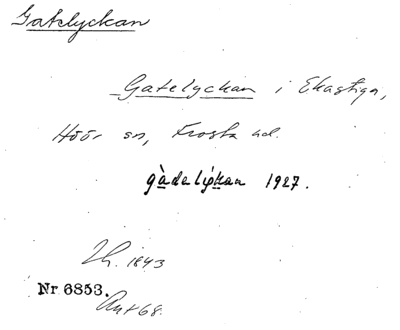 Gatelyckan
Gatelyckan i Ekastiga,
Höör sn, Frosta hd.
gàdelykan 1927.
Lh. 1843
Nr 6853.
Ant 68.